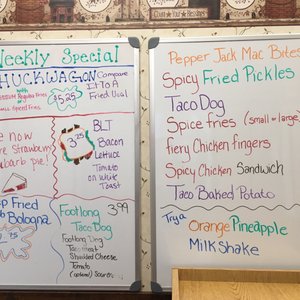 Weekly Special
CHUCKWAGON
Compare
It To A
Fried Oval
with
Regular Fries
or
Small Speed Fries
$5.25
BLT
3.25
Bacon
Lettuce
Tomato
on White
Toast
now
Strawberry
Rhubarb pie!
Fried
Bologna
.75
Footlong
Taco Dog
3.99
Footlong Dog
Taco Meat
Shredded Cheese
Tomato
(optional) Sauces
Pepper Jack Mac Bites
Spicy Fried Pickles
Taco Dog
Spice fries (small or large)
Fiery Chicken fingers
Spicy Chicken Sandwich
Taco Baked Potato
Try a
Orange Pineapple
Milkshake